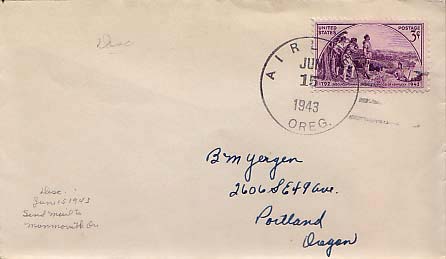 Disc
UNITED STATES POSTAGE 3¢
1792 1942
AIRL
JUN
15
1943
OREG.
B M Yergen
2606 S E 49 Ave.
Portland
Oregon
Disc.
Jun 15 1943
Send Mail to
Monmouth Or